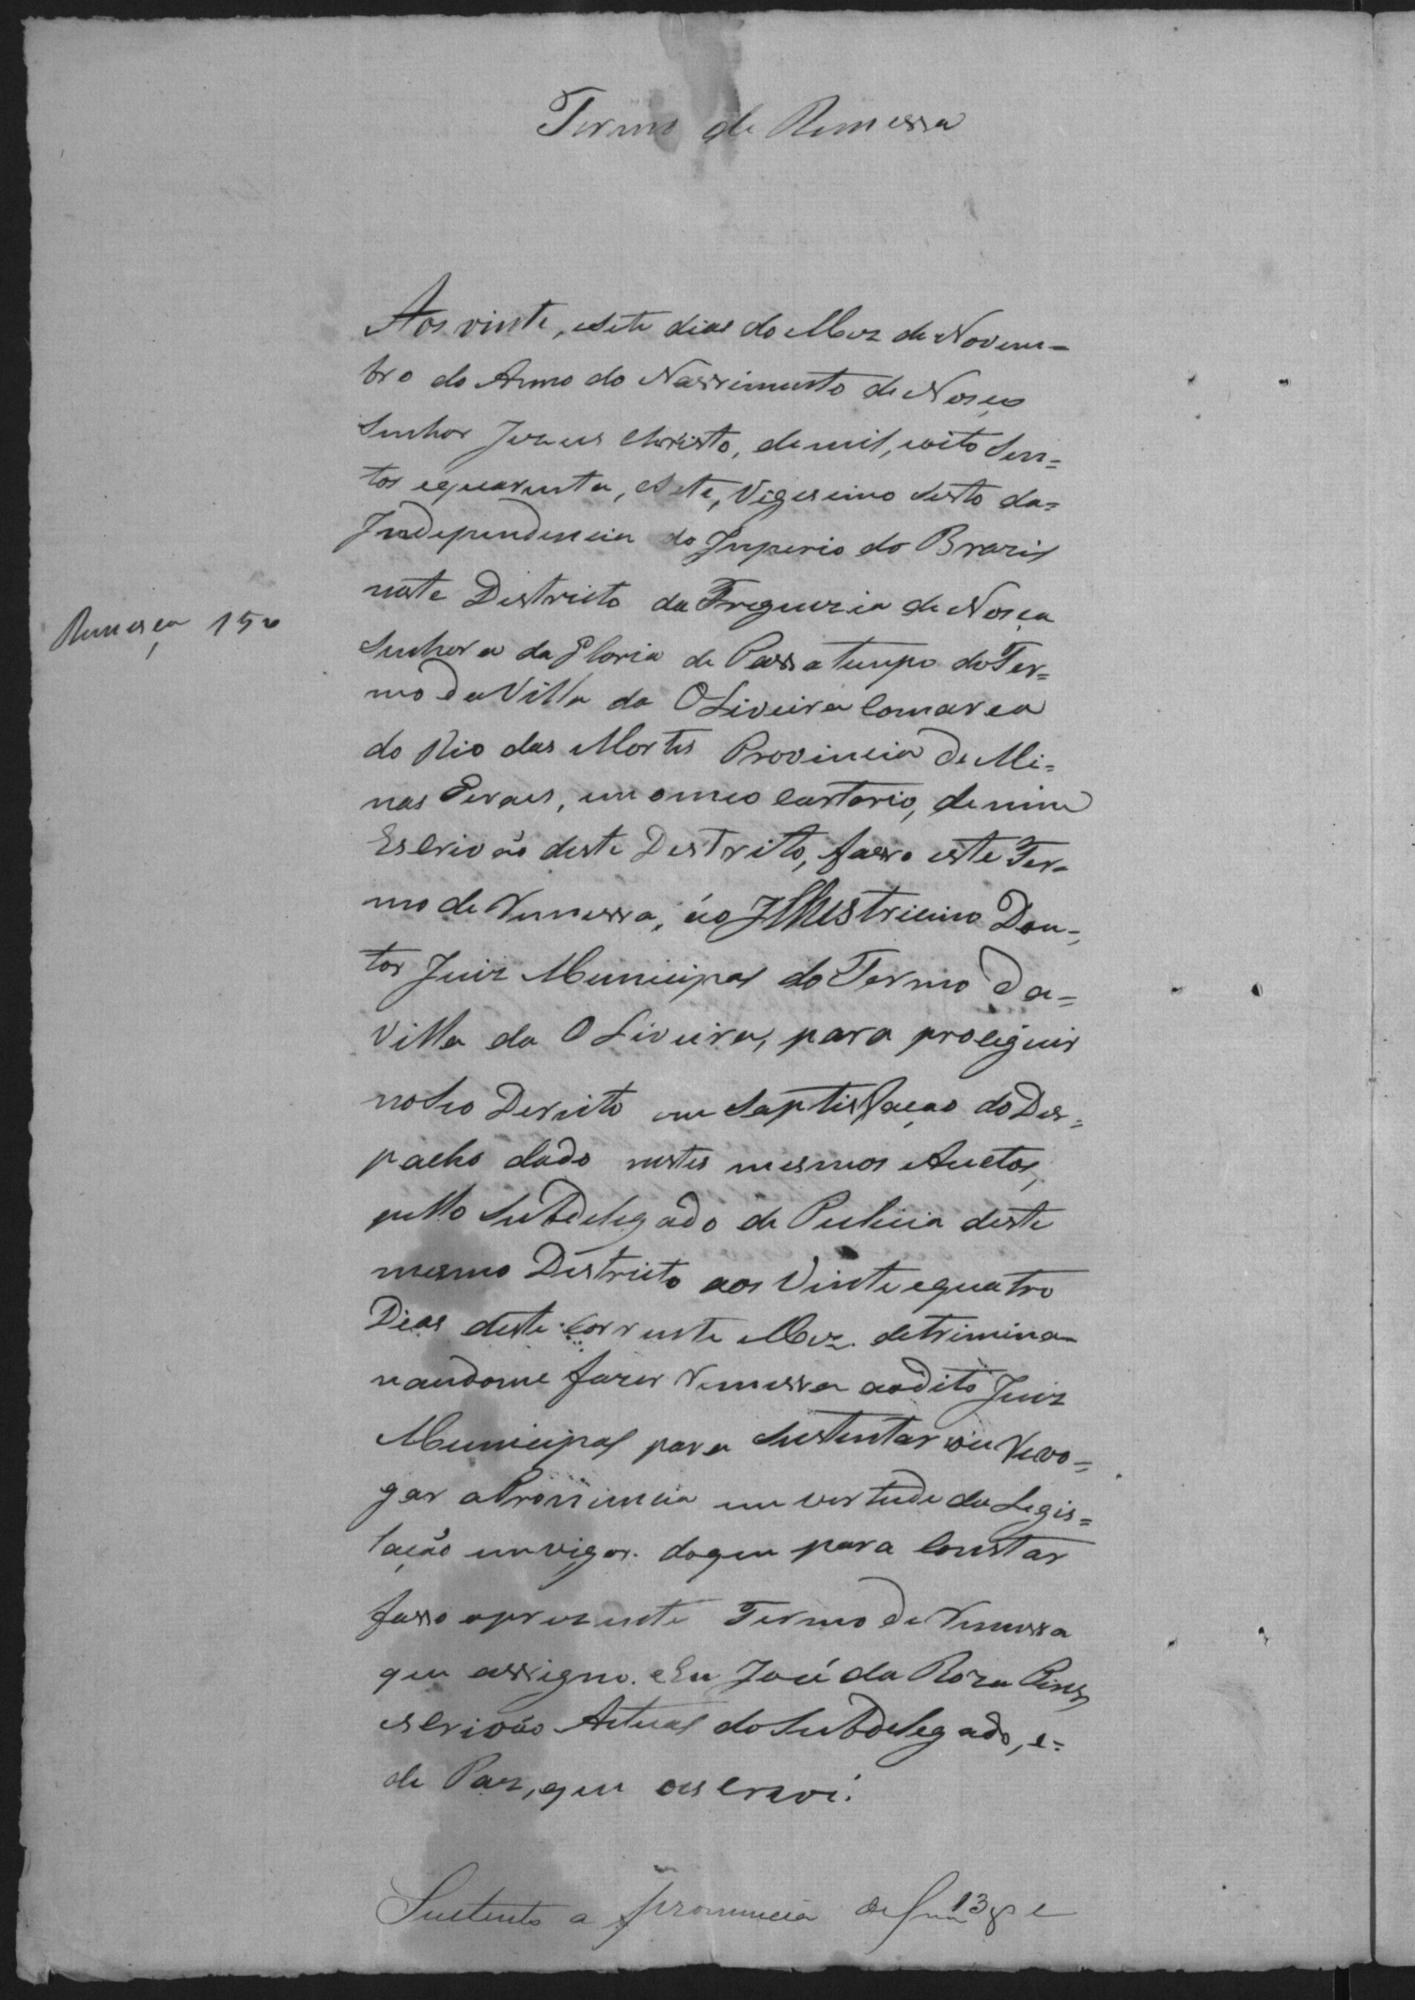 Termo de Remessa
Aos vinte, esete dias do Mez de Novem-
bro do Anno do Nassimento de Noço
Senhor Jezus Christo, de mil, eoito Sen=
tos equarenta, esete, Vigesimo Sesto da=
Independencia do Imperio do Brazil
neste Districto da Freguezia de Noça
Remeça 150
Senhora da Gloria de Passatempo do Ter=
mo da Villa da OLiveira Comarca
do Rio das Mortes Provincia de Mi=
nas Geraes, em omeo Cartorio, de mim
Escrivão deste Destrito, fasso este Ter-
mo de Remessa, áo Illustricimo Dou-
tor Juiz Municipal do Termo da=
Villa da OLiveira, para proseguir
no Seo Dereito em Saptisfaçao do Des=
pacho dado nestes mesmos Auctos,
pello Subdelegado de Pulicia deste
mesmo Districto aos Vinte equatro
Dias deste Corrente Mez. detrimina
nandome fazer Remessa aodito Juiz
Municipal para Sustentar ou Revo=
gar a Pronuncia em vertude da Legis=
lação em vigor. doque para Constar
fasso oprezente Termo de Remessa
que assigno. eEu José da Roza Pires
escrivão Actual do Subdelegado, e=
de Paz, que oescrevi.
Sustento a pronuncia de f 13 e